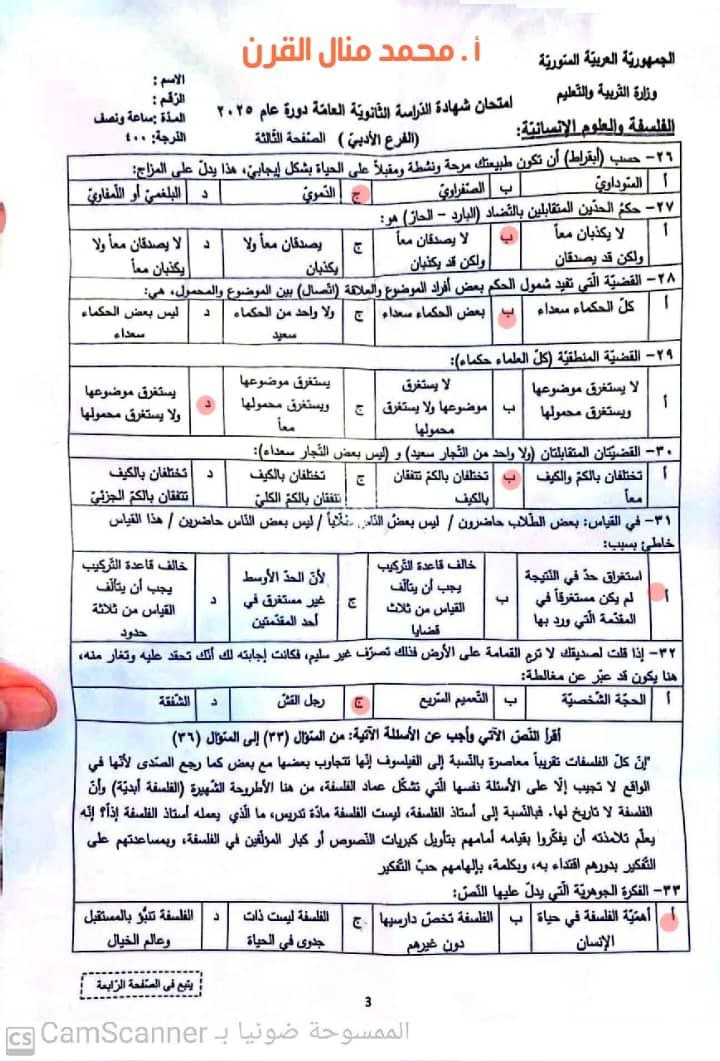 أ. محمد منال القرن
الجمهوريّة العربيّة السّوريّة
وزارة التّربية والتّعليم
الفلسفة والعلوم الإنسانيّة:
امتحان شهادة الدّراسة الثّانويّة العامّة دورة عام ٢٠٢٥
(الفرع الأدبيّ) الصّفحة الثّالثة
الاسم :
الرّقم :
المدّة : ساعة ونصف
الدّرجة: ٤٠٠
٢٦- حسب (أبقراط) أن تكون طبيعتك مرحة ونشطة ومقبلاً على الحياة بشكل إيجابيّ، هذا يدلّ على المزاج:
أ السّوداويّ ب الصّفراويّ ج الدّمويّ د البلغميّ أو اللّمفاويّ
٢٧- حكمُ الحدّين المتقابلين بالتّضاد (البارد - الحارّ) هو:
أ لا يكذبان معاً ب لا يصدقان معاً ج يصدقان معاً ولا د لا يصدقان معاً ولا
ولكن قد يصدقان ولكن قد يكذبان يكذبان يكذبان معاً
٢٨- القضيّة الّتي تفيد شمول الحكم بعض أفراد الموضوع والعلاقة (اتّصال) بين الموضوع والمحمول، هي:
أ كلّ الحكماء سعداء ب بعض الحكماء سعداء ج ولا واحد من الحكماء د ليس بعض الحكماء
سعيد سعداء
٢٩- القضيّة المنطقيّة (كلّ العلماء حكماء):
لا يستغرق يستغرق موضوعها
أ لا يستغرق موضوعها ب موضوعها ولا يستغرق ج ويستغرق محمولها د يستغرق موضوعها
ويستغرق محمولها محمولها معاً ولا يستغرق محمولها
٣٠- القضيّتان المتقابلتان (ولا واحد من التّجار سعيد) و (ليس بعض التّجار سعداء):
أ تختلفان بالكمّ والكيف ب تختلفان بالكمّ تتفقان ج تختلفان بالكيف د تختلفان بالكيف
معاً بالكيف تتفقان بالكمّ الكليّ تتفقان بالكمّ الجزئيّ
٣١- في القياس: بعض الطّلاب حاضرون / ليس بعضُ النّاس طلّاباً / ليس بعض النّاس حاضرين / هذا القياس
خاطئ بسبب:
خالف قاعدة التّركيب خالف قاعدة التّركيب
أ استغراق حدّ في النّتيجة ب يجب أن يتألّف ج لأنّ الحدّ الأوسط د يجب أن يتألّف
لم يكن مستغرقاً في القياس من ثلاث غير مستغرق في القياس من ثلاثة
المقدّمة الّتي ورد بها قضايا أحد المقدّمتين حدود
٣٢- إذا قلت لصديقك لا ترمِ القمامة على الأرض فذلك تصرّف غير سليم، فكانت إجابته لك أنّك تحقد عليه وتغار منه،
هنا يكون قد عبّر عن مغالطة:
أ الحجّة الشّخصيّة ب التّعميم السّريع ج رجل القشّ د الشّفقة
أقرأ النّص الآتي وأجب عن الأسئلة الآتية: من السّؤال (٣٣) إلى السّؤال (٣٦)
"إنّ كلّ الفلسفات تقريباً معاصرة بالنّسبة إلى الفيلسوف إنّها تتجارب بعضها مع بعض كما رجع الصّدى لأنّها في
الواقع لا تجيب إلّا على الأسئلة نفسها الّتي تشكّل عماد الفلسفة، من هنا الأطروحة الشّهيرة (الفلسفة أبديّة) وأنّ
الفلسفة لا تاريخ لها. فبالنّسبة إلى أستاذ الفلسفة، ليست الفلسفة مادّة تدريس، ما الّذي يعمله أستاذ الفلسفة إذاً؟ إنّه
يعلّم تلامذته أن يفكّروا بقيامه أمامهم بتأويل كبريات النّصوص أو كبار المؤلّفين في الفلسفة، وبمساعدتهم على
التّفكير بدورهم اقتداء به، وبكلمة، بإلهامهم حبّ التّفكير
٣٣- الفكرة الجوهريّة الّتي يدلّ عليها النّصّ:
أ أهمّيّة الفلسفة في حياة ب الفلسفة تخصّ دارسيها ج الفلسفة ليست ذات د الفلسفة تتنبّؤ بالمستقبل
الإنسان دون غيرهم جدوى في الحياة وعالم الخيال
يتبع في الصّفحة الرّابعة
3
CS الممسوحة ضوئيا بـ CamScanner